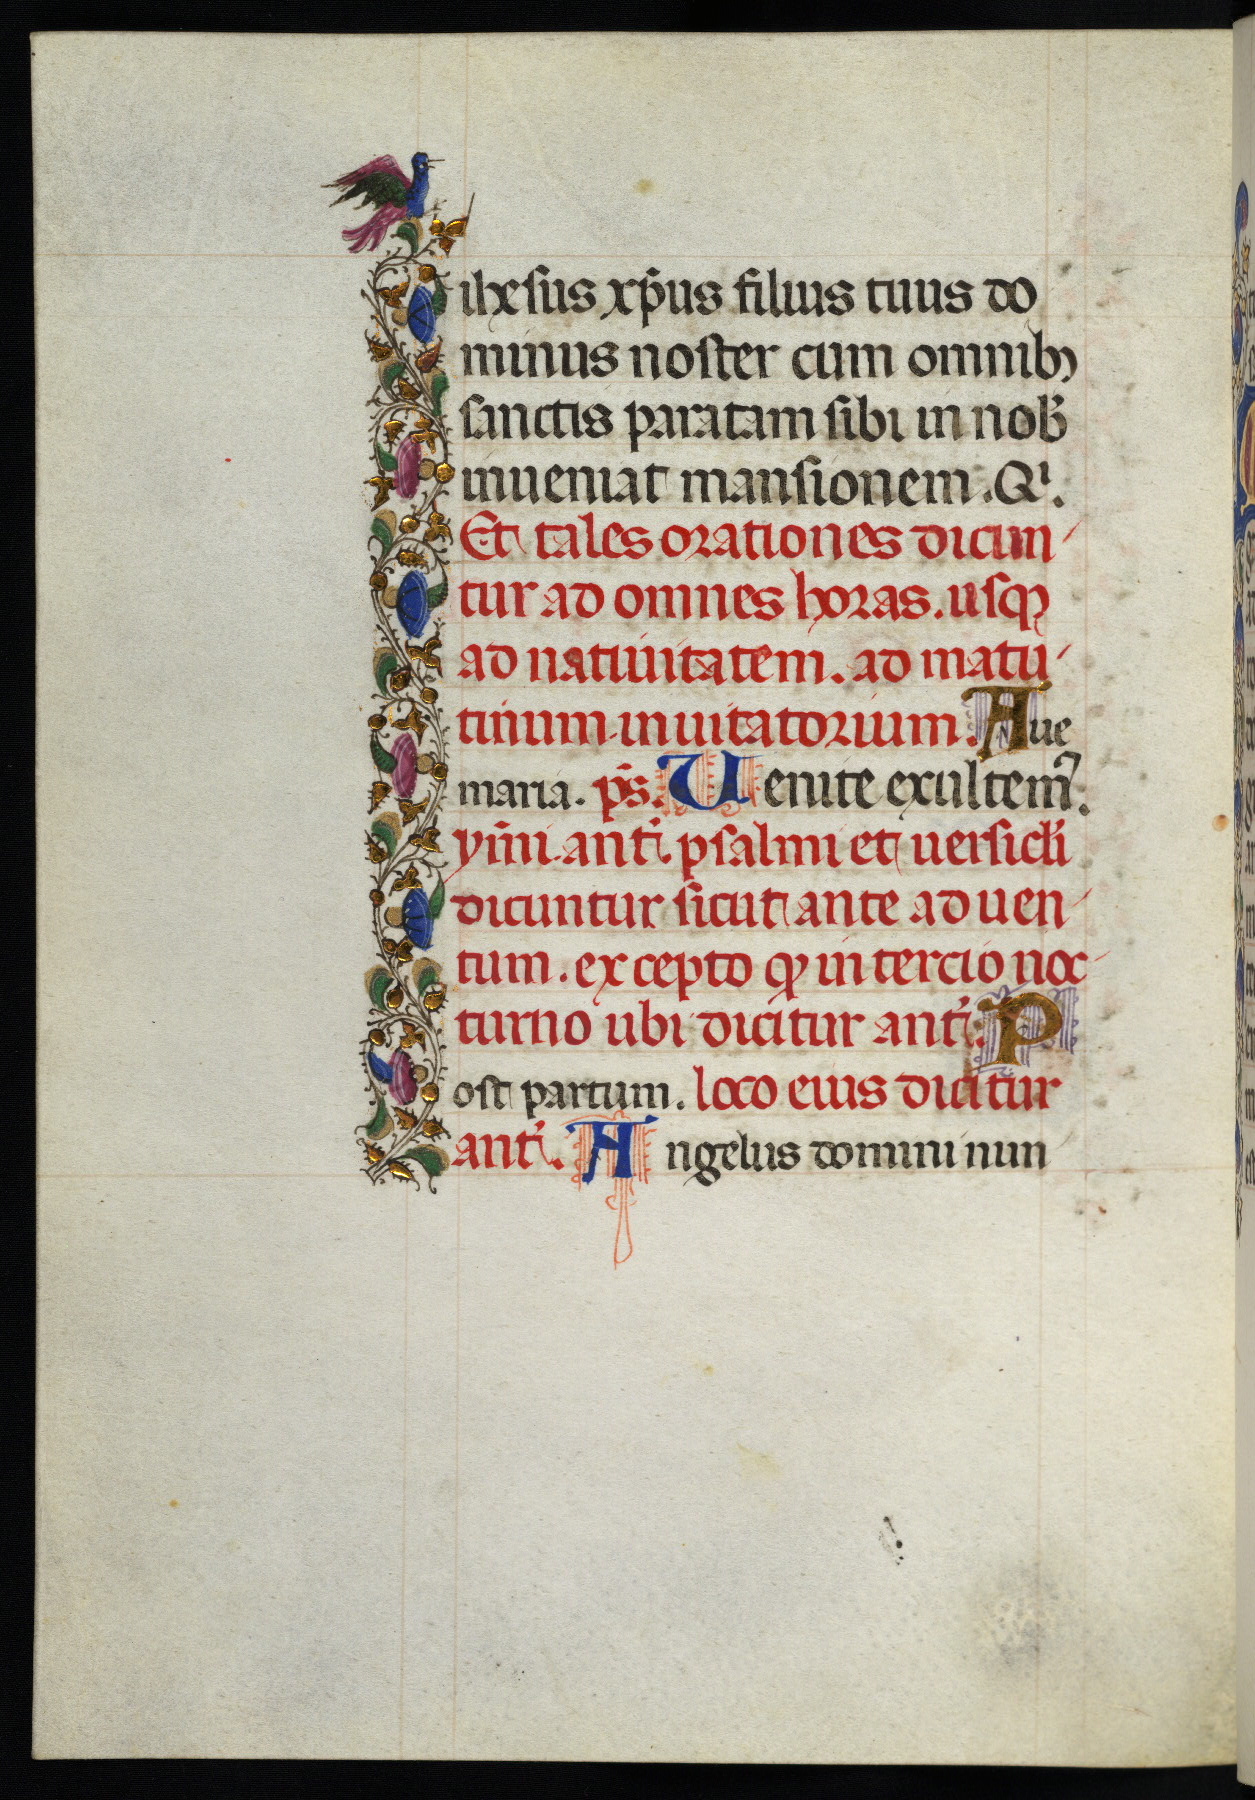 ihesus xp̄us filius tuus do
minus noster cum omnibꝫ
sanctis paratam sibi in nob̄
inueniat mansionem. Qⁱ.
Et tales orationes dicun
tur ad omnes horas. usqꝫ
ad natiuitatem. ad matu
tinum inuitatorium. Aue
maria. pˢ. Uenite exultemꝰ.
ymni. antͥ. psalmi et uersicl̓i
dicuntur sicut ante aduen
tum. excepto ꝙ in tercio noc
turno ubi dicitur antͥ. P
ost partum. loco eius dicitur
antͥ. Angelus domini nun